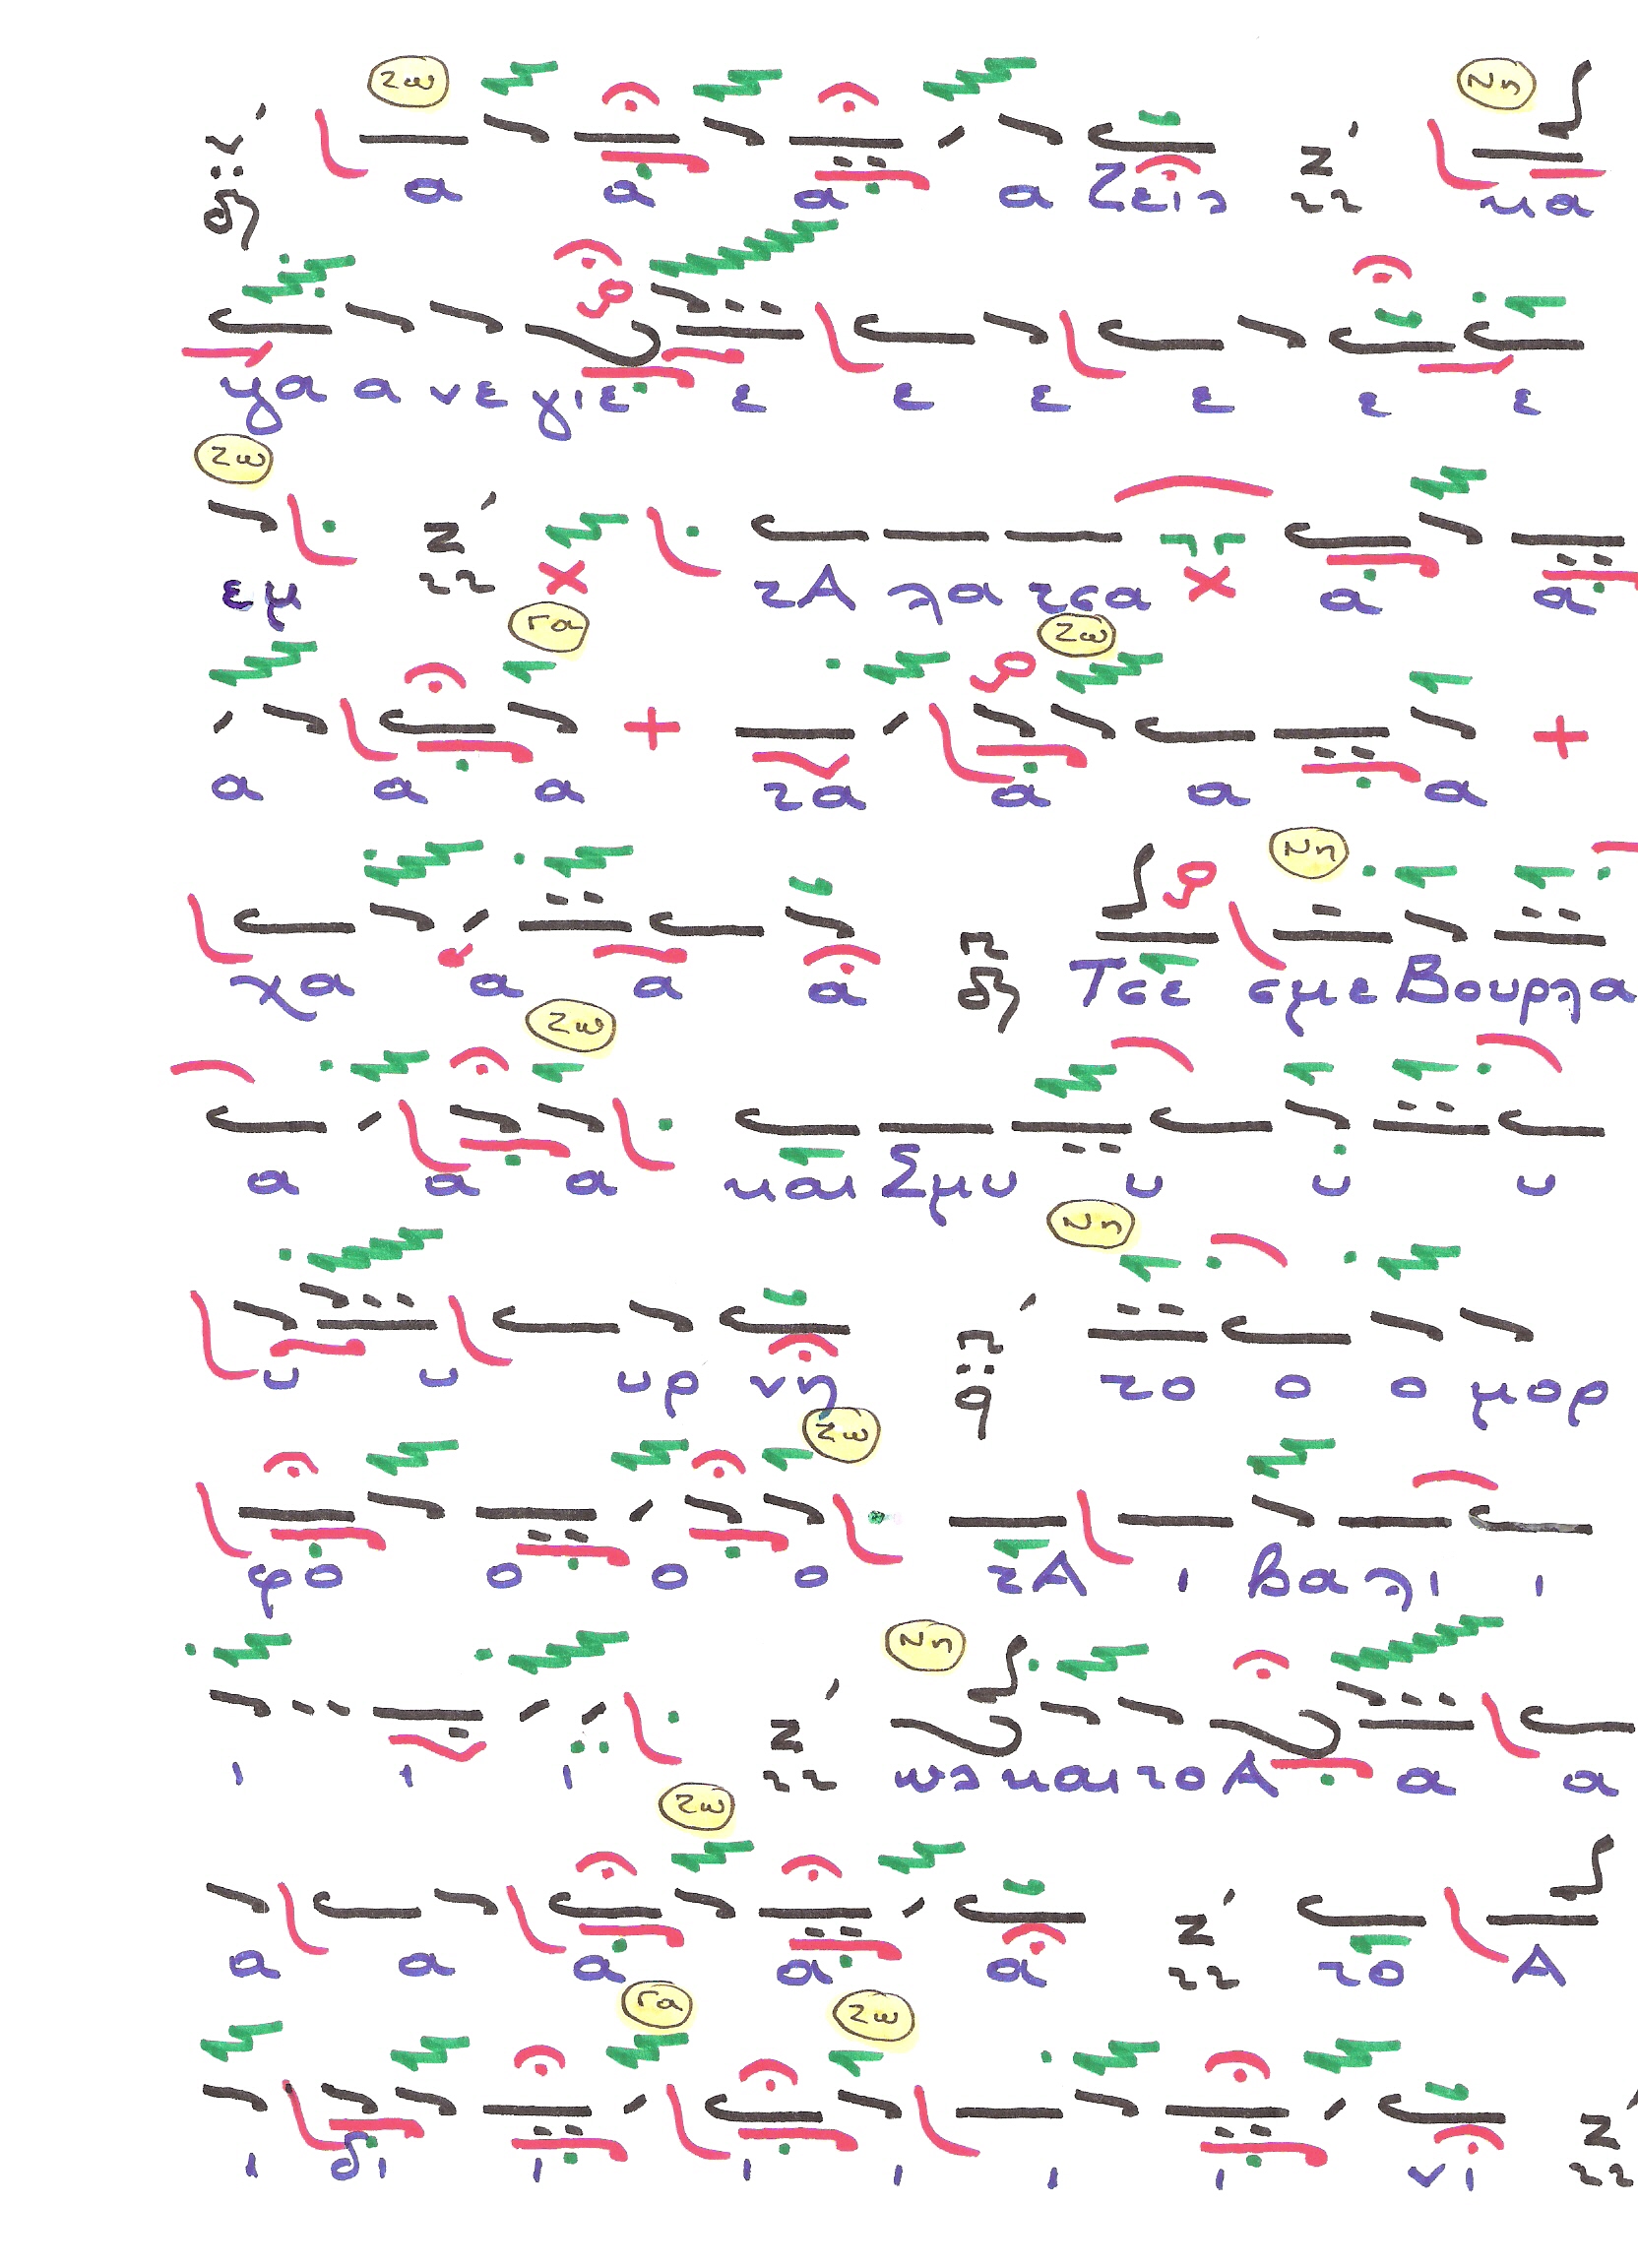 Ζω Νη
ν' δη α α α α ζεις Ζ' κα
γα α νε γιε ε ε ε ε ε ε
Ζω
εμ Ζ' τΑ λα τσα α α
Γα Ζω
α α α τα α α α
Νη
χα α α α π δη Τσε σμε Βουρλα
Ζω
α α α και Σμυ υ υ υ
Νη
υ υ υρ νη π' q το ο ο μορ
Ζω
φο ο ο ο τΑ ι βαλι ι
Νη
ι ι ι Ζ' ως και το Α α α
Ζω
α α α α α Ζ' το Α
Γα Ζω
ι δι ι ι ι ι ι νι Ζ'